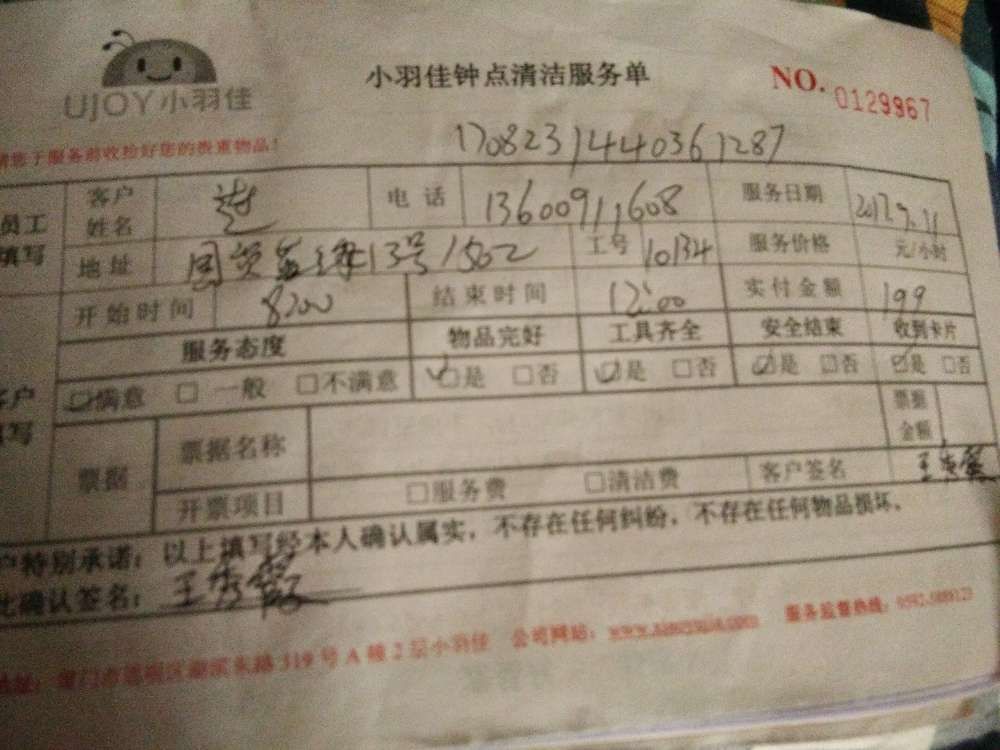 UJOY小羽佳
小羽佳钟点清洁服务单
NO. 0129967
您于服务前收拾好您的贵重物品!
1708231440361287
员工填写 客户姓名 电话 13600911608 服务日期 2017.9.11
地址 13号1502 工号 10134 服务价格 元/小时
开始时间 8:00 结束时间 12:00 实付金额 199
服务态度 物品完好 工具齐全 安全结束 收到卡片
☑满意 □一般 □不满意 ☑是 □否 ☑是 □否 ☑是 □否 ☑是 □否
票据 票据名称 票据金额
开票项目 □服务费 □清洁费 客户签名 王秀霞
特别承诺：以上填写经本人确认属实，不存在任何纠纷，不存在任何物品损坏。
此确认签名：王秀霞
319号A幢2层小羽佳 公司网站： 服务监督热线：